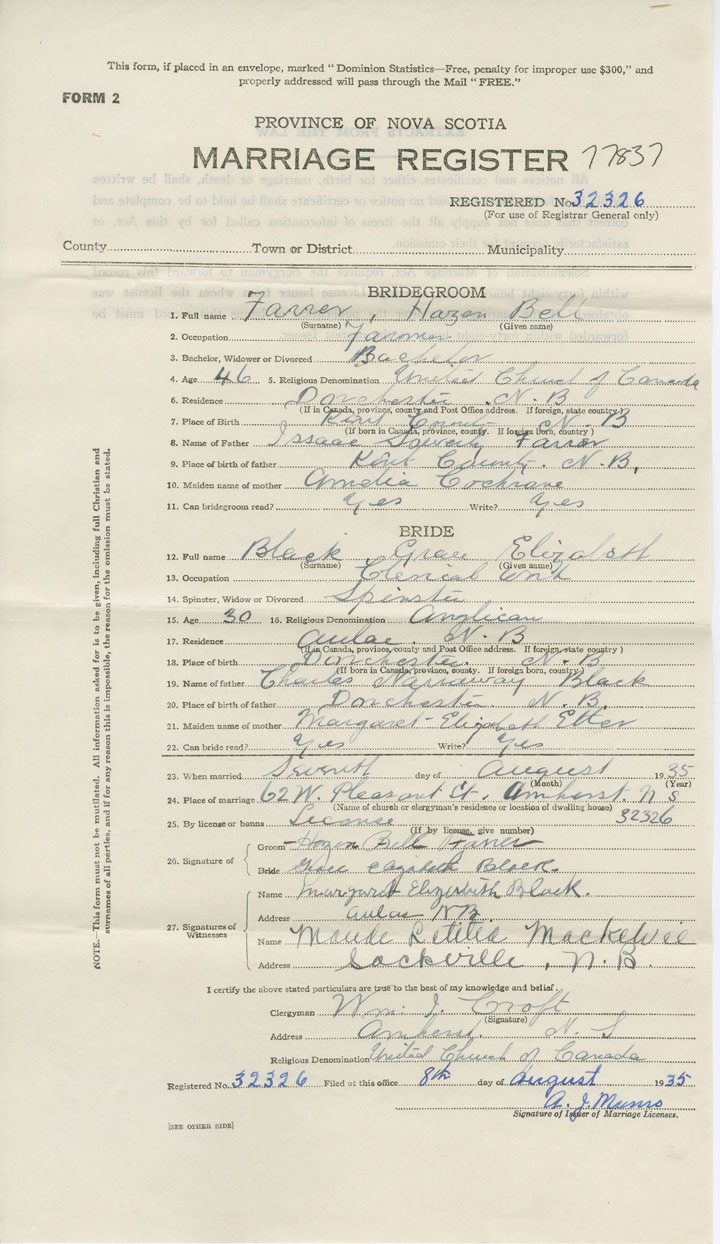 This form, if placed in an envelope, marked "Dominion Statistics—Free, penalty for improper use $300," and
properly addressed will pass through the Mail "FREE."
FORM 2
PROVINCE OF NOVA SCOTIA
MARRIAGE REGISTER 77837
REGISTERED No. 32326
(For use of Registrar General only)
County Town or District Municipality
BRIDEGROOM
1. Full name Farrer, Hazen Bell
(Surname) (Given name)
2. Occupation Farmer
3. Bachelor, Widower or Divorced Bachelor
4. Age 46 5. Religious Denomination United Church of Canada
6. Residence Dorchester N. B
(If in Canada, province, county and Post Office address. If foreign, state country)
7. Place of Birth Kent County N B
(If born in Canada, province, county. If foreign born, country)
8. Name of Father Issaac Farrer
9. Place of birth of father Kent County. N. B.
10. Maiden name of mother Amelia Cochrane
11. Can bridegroom read? Yes Write? Yes
BRIDE
12. Full name Black, Grace Elizabeth
(Surname) (Given name)
13. Occupation Clerical Work
14. Spinster, Widow or Divorced Spinster
15. Age 30 16. Religious Denomination Anglican
17. Residence Aulac. N. B
(If in Canada, province, county and Post Office address. If foreign, state country)
18. Place of birth Dorchester. N. B.
(If born in Canada, province, county. If foreign born, country)
19. Name of father Charles Black
20. Place of birth of father Dorchester N. B.
21. Maiden name of mother Margaret Elizabeth Etter
22. Can bride read? Yes Write? Yes
23. When married Seventh day of August 1935
(Month) (Year)
24. Place of marriage 62 W. Pleasant St. Amherst, N S
(Name of church or clergyman's residence or location of dwelling house)
25. By license or banns License 32326
(If by license, give number)
26. Signature of
Groom Hazen Bell Farrer
Bride Grace Elizabeth Black.
27. Signatures of Witnesses
Name Margaret Elizabeth Black.
Address Aulac NB.
Name Maude Letitia Mackelvie
Address Sackville, N. B.
I certify the above stated particulars are true to the best of my knowledge and belief.
Clergyman Wm. J. Croft
(Signature)
Address Amherst. N. S
Religious Denomination United Church of Canada
Registered No. 32326 Filed at this office 8th day of August 1935
A. J. Munro
Signature of Issuer of Marriage Licenses.
[SEE OTHER SIDE]
NOTE.—This form must not be mutilated. All information asked for is to be given, including full Christian and
surnames of all parties, and if for any reason this is impossible, the reason for the omission must be stated.